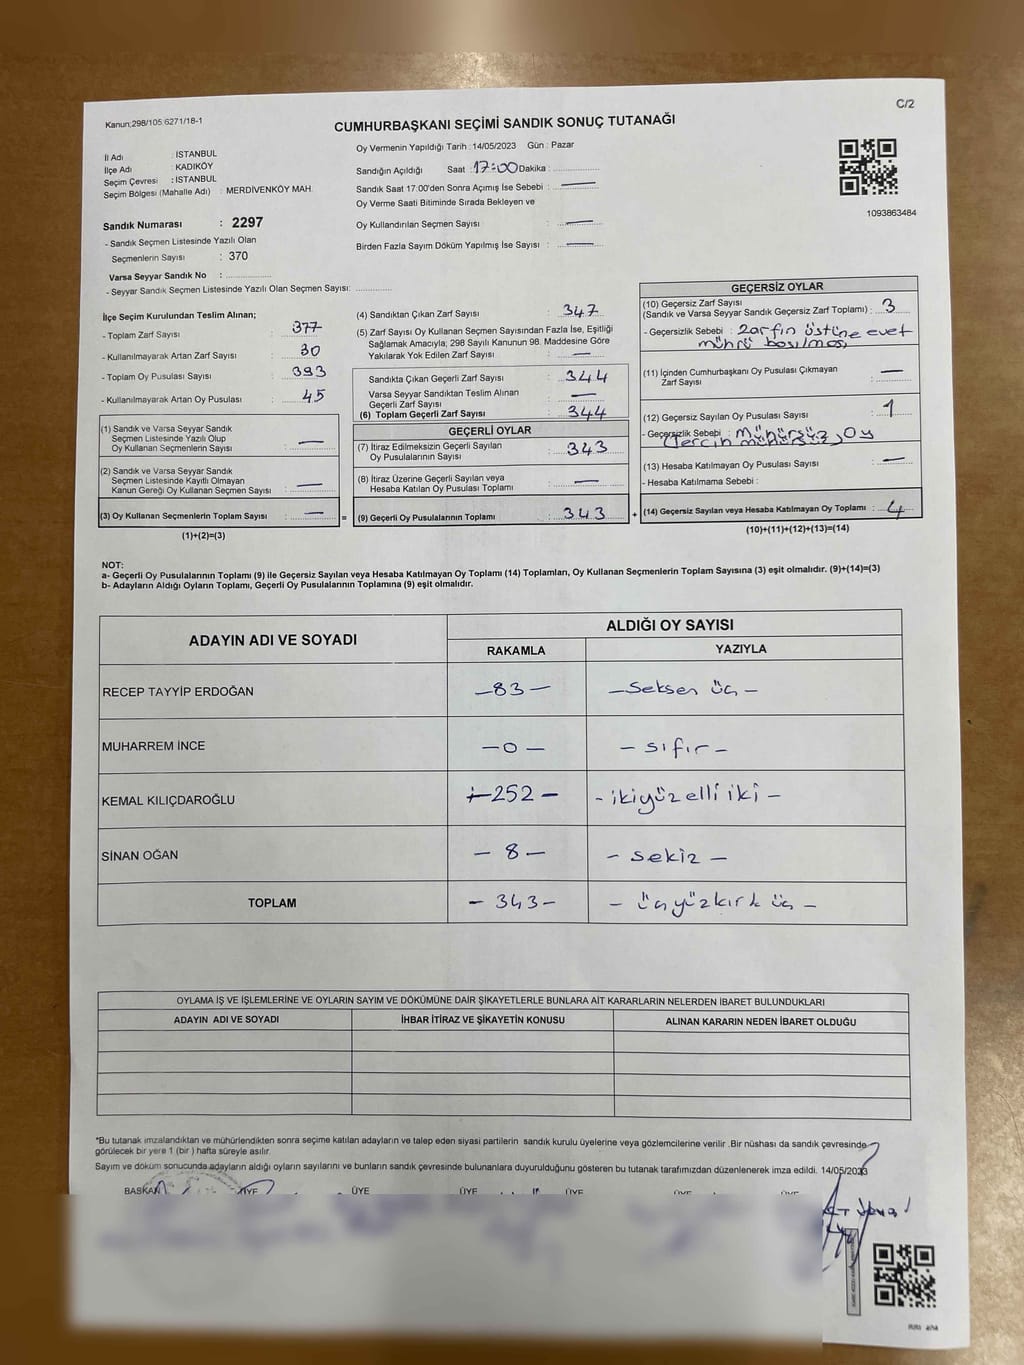 C/2
Kanun:298/105.6271/18-1
CUMHURBAŞKANI SEÇİMİ SANDIK SONUÇ TUTANAĞI
İl Adı : İSTANBUL
İlçe Adı : KADIKÖY
Seçim Çevresi : İSTANBUL
Seçim Bölgesi (Mahalle Adı) : MERDİVENKÖY MAH.
Sandık Numarası : 2297
- Sandık Seçmen Listesinde Yazılı Olan
Seçmenlerin Sayısı : 370
Varsa Seyyar Sandık No :
- Seyyar Sandık Seçmen Listesinde Yazılı Olan Seçmen Sayısı:
Oy Vermenin Yapıldığı Tarih : 14/05/2023 Gün : Pazar
Sandığın Açıldığı Saat : 17:00 Dakika :
Sandık Saat 17:00'den Sonra Açımış İse Sebebi : —
Oy Verme Saati Bitiminde Sırada Bekleyen ve
Oy Kullandırılan Seçmen Sayısı : —
Birden Fazla Sayım Döküm Yapılmış İse Sayısı : —
1093863484
İlçe Seçim Kurulundan Teslim Alınan;
- Toplam Zarf Sayısı : 377
- Kullanılmayarak Artan Zarf Sayısı : 30
- Toplam Oy Pusulası Sayısı : 393
- Kullanılmayarak Artan Oy Pusulası : 45
(1) Sandık ve Varsa Seyyar Sandık
Seçmen Listesinde Yazılı Olup
Oy Kullanan Seçmenlerin Sayısı : —
(2) Sandık ve Varsa Seyyar Sandık
Seçmen Listesinde Kayıtlı Olmayan
Kanun Gereği Oy Kullanan Seçmen Sayısı : —
(3) Oy Kullanan Seçmenlerin Toplam Sayısı : — =
(1)+(2)=(3)
(4) Sandıktan Çıkan Zarf Sayısı : 347
(5) Zarf Sayısı Oy Kullanan Seçmen Sayısından Fazla İse, Eşitliği
Sağlamak Amacıyla; 298 Sayılı Kanunun 98. Maddesine Göre
Yakılarak Yok Edilen Zarf Sayısı : —
Sandıkta Çıkan Geçerli Zarf Sayısı : 344
Varsa Seyyar Sandıktan Teslim Alınan
Geçerli Zarf Sayısı : —
(6) Toplam Geçerli Zarf Sayısı : 344
GEÇERLİ OYLAR
(7) İtiraz Edilmeksizin Geçerli Sayılan
Oy Pusulalarının Sayısı : 343
(8) İtiraz Üzerine Geçerli Sayılan veya
Hesaba Katılan Oy Pusulası Toplamı : —
(9) Geçerli Oy Pusulalarının Toplamı : 343 +
GEÇERSİZ OYLAR
(10) Geçersiz Zarf Sayısı
(Sandık ve Varsa Seyyar Sandık Geçersiz Zarf Toplamı) : 3
- Geçersizlik Sebebi : Zarfın üstüne evet
mührü basılmış
(11) İçinden Cumhurbaşkanı Oy Pusulası Çıkmayan
Zarf Sayısı : —
(12) Geçersiz Sayılan Oy Pusulası Sayısı : 1
- Geçersizlik Sebebi : Mühürsüz Oy
(Tercih
(13) Hesaba Katılmayan Oy Pusulası Sayısı : —
- Hesaba Katılmama Sebebi :
(14) Geçersiz Sayılan veya Hesaba Katılmayan Oy Toplamı : 4
(10)+(11)+(12)+(13)=(14)
NOT:
a- Geçerli Oy Pusulalarının Toplamı (9) ile Geçersiz Sayılan veya Hesaba Katılmayan Oy Toplamı (14) Toplamları, Oy Kullanan Seçmenlerin Toplam Sayısına (3) eşit olmalıdır. (9)+(14)=(3)
b- Adayların Aldığı Oyların Toplamı, Geçerli Oy Pusulalarının Toplamına (9) eşit olmalıdır.
ADAYIN ADI VE SOYADI
ALDIĞI OY SAYISI
RAKAMLA YAZIYLA
RECEP TAYYİP ERDOĞAN —83— —Seksen üç—
MUHARREM İNCE —0— —sıfır—
KEMAL KILIÇDAROĞLU —252— —ikiyüz elli iki—
SİNAN OĞAN —8— —sekiz—
TOPLAM —343— —üçyüzkırk üç—
OYLAMA İŞ VE İŞLEMLERİNE VE OYLARIN SAYIM VE DÖKÜMÜNE DAİR ŞİKAYETLERLE BUNLARA AİT KARARLARIN NELERDEN İBARET BULUNDUKLARI
ADAYIN ADI VE SOYADI İHBAR İTİRAZ VE ŞİKAYETİN KONUSU ALINAN KARARIN NEDEN İBARET OLDUĞU
*Bu tutanak imzalandıktan ve mühürlendikten sonra seçime katılan adayların ve talep eden siyasi partilerin sandık kurulu üyelerine veya gözlemcilerine verilir .Bir nüshası da sandık çevresinde
görülecek bir yere 1 (bir ) hafta süreyle asılır.
Sayım ve döküm sonucunda adayların aldığı oyların sayılarını ve bunların sandık çevresinde bulunanlara duyurulduğunu gösteren bu tutanak tarafımızdan düzenlenerek imza edildi. 14/05/2023
BAŞKAN ÜYE ÜYE ÜYE ÜYE ÜYE ÜYE